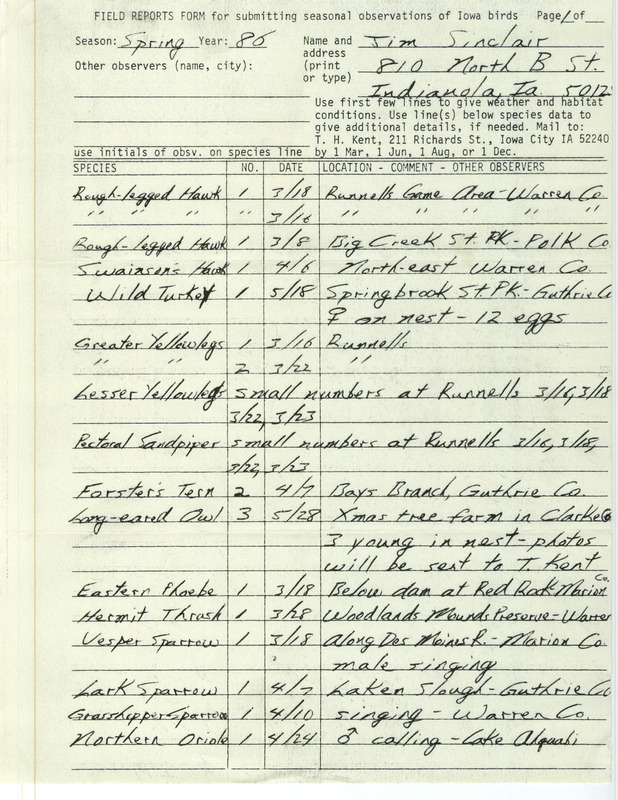 FIELD REPORTS FORM for submitting seasonal observations of Iowa birds Page 1 of
Season: Spring Year: 86 Name and Jim Sinclair
Other observers (name, city): address 810 North B St.
(print
or type) Indianola, Ia. 5012
Use first few lines to give weather and habitat
conditions. Use line(s) below species data to
give additional details, if needed. Mail to:
T. H. Kent, 211 Richards St., Iowa City IA 52240
use initials of obsv. on species line by 1 Mar, 1 Jun, 1 Aug, or 1 Dec.
SPECIES NO. DATE LOCATION - COMMENT - OTHER OBSERVERS
Rough-legged Hawk 1 3/18 Runnells Game Area - Warren Co.
" " " " 3/16 " " " " "
Rough-legged Hawk 1 3/8 Big Creek St. PK. - Polk Co
Swainson's Hawk 1 4/6 North-east Warren Co.
Wild Turkey 1 5/18 Springbrook St. PK. - Guthrie Co
♀ on nest - 12 eggs
Greater Yellowlegs 1 3/16 Runnells
" " 2 3/22 "
Lesser Yellowlegs small numbers at Runnells 3/16, 3/18
3/22, 3/23
Pectoral Sandpiper small numbers at Runnells 3/16, 3/18,
3/22, 3/23
Forster's Tern 2 4/7 Bays Branch, Guthrie Co.
Long-eared Owl 3 5/28 Xmas tree farm in Clarke Co
3 young in nest - photos
will be sent to T. Kent
Eastern Phoebe 1 3/18 Below dam at Red Rock - Marion Co.
Hermit Thrush 1 3/28 Woodlands Mounds Preserve - Warren
Vesper Sparrow 1 3/18 along Des Moines R. - Marion Co.
male singing
Lark Sparrow 1 4/7 Laken Slough - Guthrie Co
Grasshopper Sparrow 1 4/10 singing - Warren Co.
Northern Oriole 1 4/24 ♂ calling - Lake Ahquabi